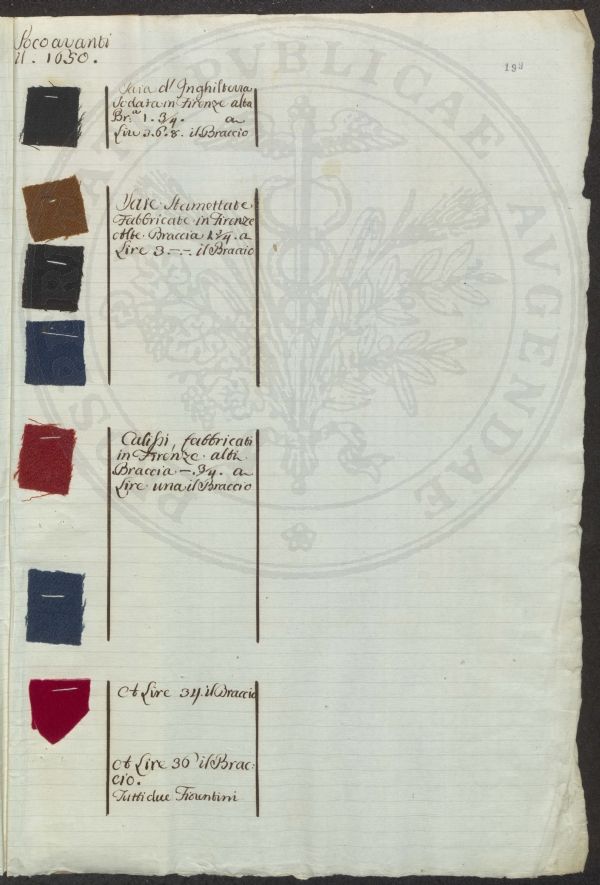 Poco avanti
il . 1650 .
199
Saia d'Inghilterra
Sodata in Firenze alta
Br.ª 1. 3/4. a
Lire 3.6.8. il Braccio
Saie Stamettate
Fabbricate in Firenze
alte Braccia 1 3/4 a
Lire 3 -.-. il Braccio
Calissi, fabbricati
in Firenze alti
Braccia -. 3/4. a
Lire una il Braccio
A Lire 34. il Braccio
A Lire 30 il Brac:
cio.
Tutti due Fiorentini
REI PVBLICAE AVGENDAE